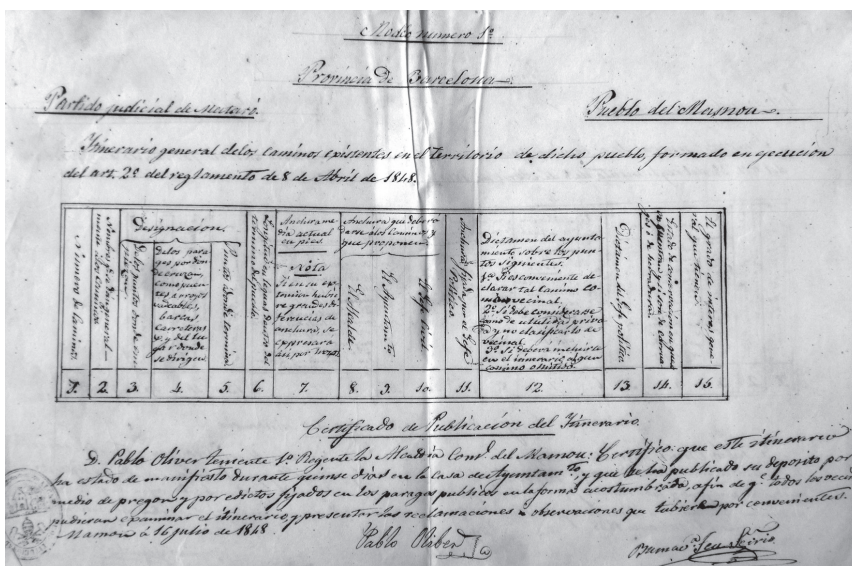 Modelo número 1º
Provincia de Barcelona.
Partido judicial de Mataró.
Pueblo del Masnou.
Itinerario general de los caminos existentes en el territorio de dicho pueblo, formado en ejecucion
del art. 2º del reglamento de 8 de Abril de 1848.
Número de caminos.
Nombres que tienen generalmente los Caminos.
Designacion.
De los puntos donde
De los para
ges por don
de cruzan,
como puen
tes arroyos
vadeables,
barcas
Carreteras
&ª y del lu
gar donde
se dirigen
Punto donde termina
Longitud en leguas dentro del
termino del pueblo.
Anchura me
dia actual
en pies.
Nota
Si en su es
tension hubie
re grandes di
ferencias de
anchura, se
expresará
asi por notas
Anchura que deberá
darse á los Caminos y
que proponen.
El Alcalde.
El Ayuntamto
El Gefe Civil
Anchura fijada por el Gefe
Politico
Dictamen del ayunta
miento sobre los pun
tos siguientes.
1º Si es conveniente de
clarar tal Camino co
mo vecinal.
2º Si debe considerarse
como de utilidad priva
da y no clasificarlo de
vecinal.
3º Si deberá incluirse
en el itinerario algun
camino omitido.
Dictamen del Gefe politico
El grado de interes que
1. 2. 3. 4. 5. 6. 7. 8. 9. 10. 11. 12. 13. 14. 15.
Certificado de Publicacion del Itinerario.
D. Pablo Oliver teniente 1º Regente la Alcaldia Conl. del Masnou: Certifico: que este itinerario
ha estado de manifiesto durante quinse dias en la casa de Ayuntamto, y que se ha publicado su deposito por
medio de pregon y por edictos fijados en los parages publicos en la forma acostumbrada, afin de q.e todos los vecinos
pudieran examinar el itinerario, y presentar las reclamaciones ú observaciones que tubieren por convenientes.
Masnou á 16 julio de 1848.
Pablo Oliber